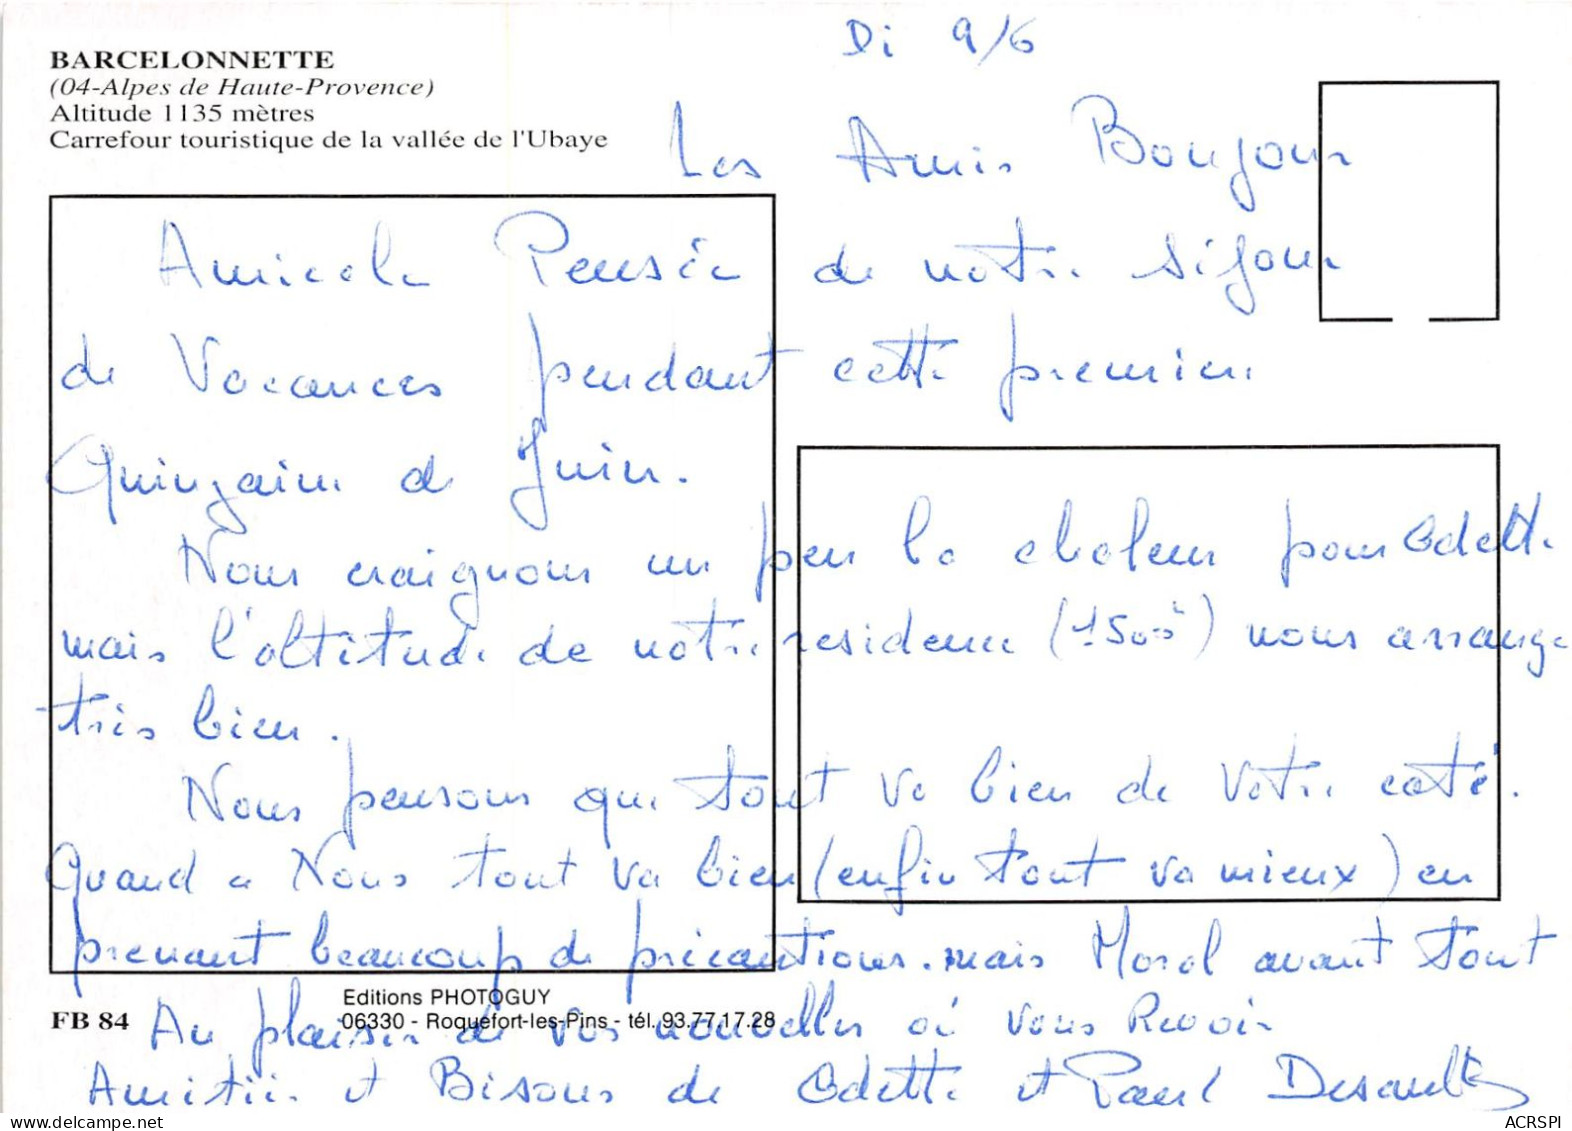 BARCELONNETTE
(04-Alpes de Haute-Provence)
Altitude 1135 mètres
Carrefour touristique de la vallée de l'Ubaye
Di 9/6
Les Amis Bonjour
Amicale Pensée de notre séjour
de Vacances pendant cette première
Quinzaine de Juin.
Nous craignons un peu la chaleur pour Odette
mais l'altitude de notre residence (1500) nous arrange
très bien.
Nous pensons que tout va bien de Votre coté.
Quand a Nous tout va bien (enfin tout va mieux) en
prenant beaucoup de précautions. mais Moral avant tout
Editions PHOTOGUY
FB 84
06330 - Roquefort-les-Pins - tél. 93.77.17.28
Au plaisir de vos nouvelles où vous Revoir
Amitiés et Bisous de Odette et Paul
delcampe.net
ACRSPI